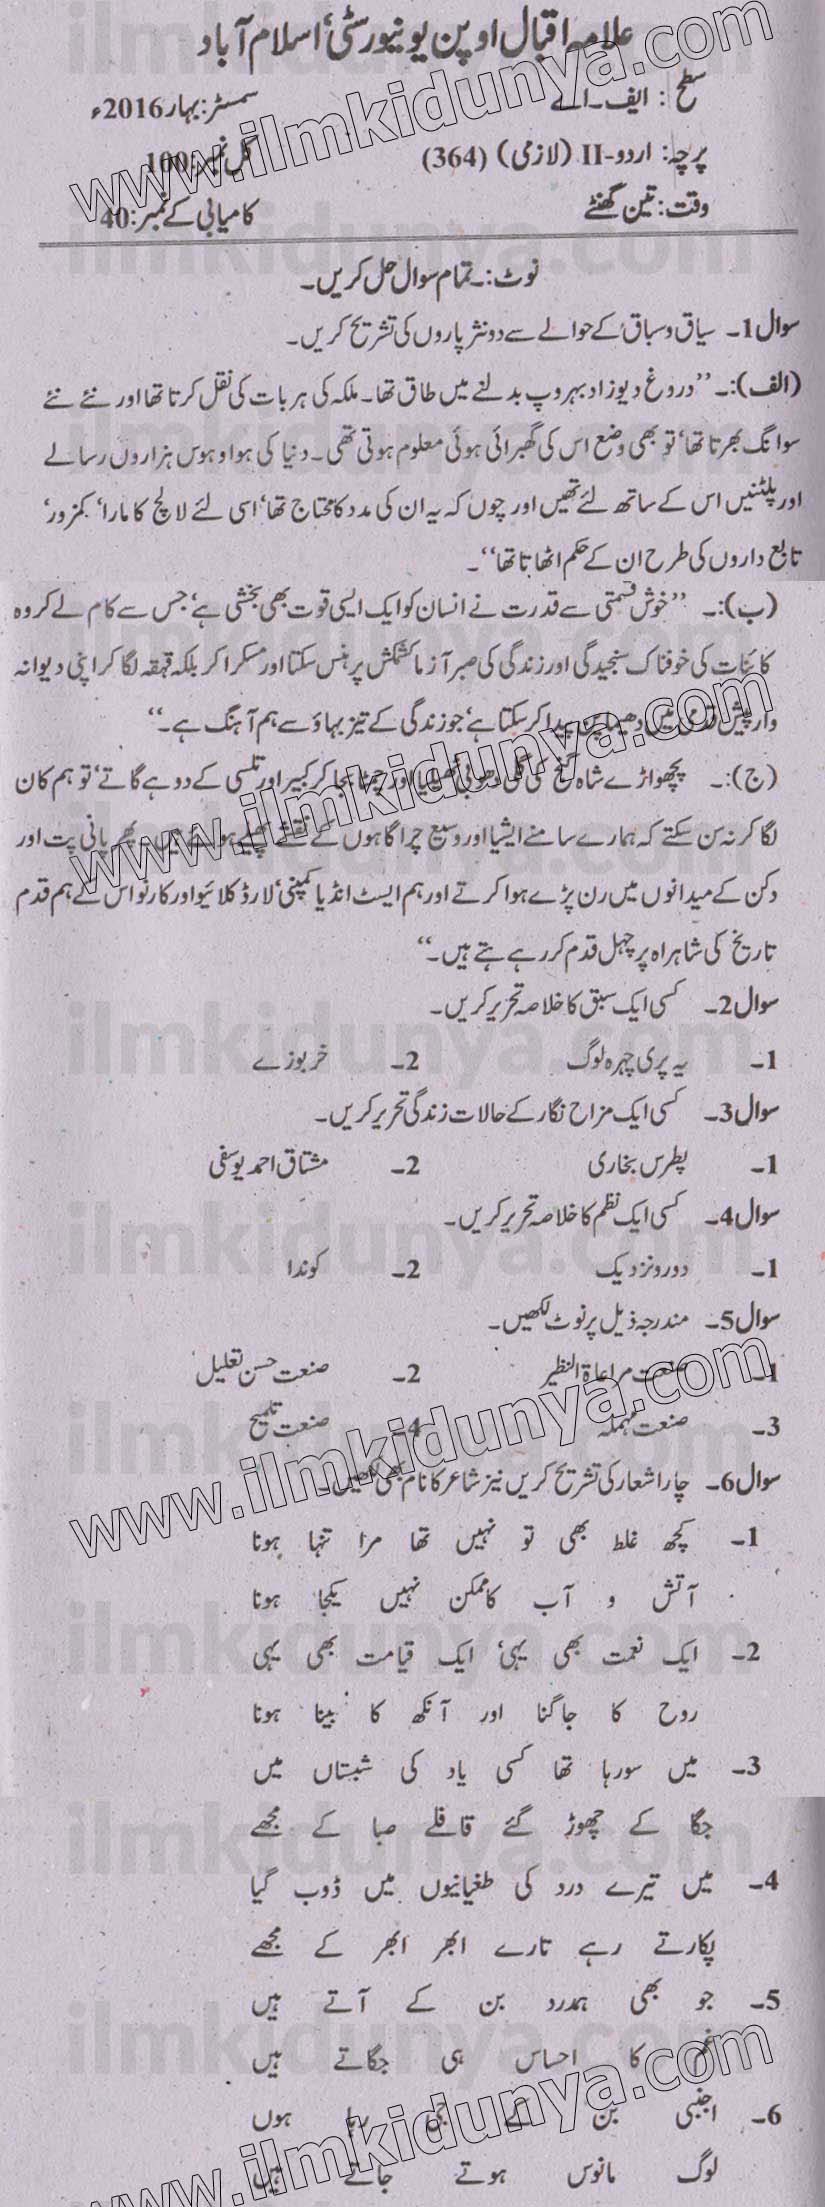 علامہ اقبال اوپن یونیورسٹی، اسلام آباد
سطح: ایف۔اے سمسٹر: بہار 2016ء
پرچہ: اردو-II (لازمی) (364) کل نمبر: 100
وقت: تین گھنٹے کامیابی کے نمبر: 40
نوٹ:۔ تمام سوال حل کریں۔
سوال 1۔ سیاق و سباق کے حوالے سے دو نثر پاروں کی تشریح کریں۔
(الف):۔ ’’دروغ دیوزاد بہروپ بدلنے میں طاق تھا۔ ملکہ کی ہر بات کی نقل کرتا تھا اور نئے نئے
سوانگ بھرتا تھا‘ تو بھی وضع اس کی گھبرائی ہوئی معلوم ہوتی تھی۔ دنیا کی ہوا و ہوس ہزاروں رسالے
اور پلٹنیں اس کے ساتھ لئے تھیں اور چوں کہ یہ ان کی مدد کا محتاج تھا‘ اسی لئے لالچ کا مارا‘ کمزور‘
تابع داروں کی طرح ان کے حکم اٹھاتا تھا‘‘۔
(ب):۔ ’’خوش قسمتی سے قدرت نے انسان کو ایک ایسی قوت بھی بخشی ہے‘ جس سے کام لے کر وہ
کائنات کی خوفناک سنجیدگی اور زندگی کی صبر آزما کشمکش پر ہنس سکتا اور مسکرا کر بلکہ قہقہہ لگا کر اپنی دیوانہ
وار پیش قدمی میں دھیما پن پیدا کر سکتا ہے‘ جو زندگی کے تیز بہاؤ سے ہم آہنگ ہے۔‘‘
(ج):۔ پچھواڑے شاہ گنج کی گلی دھوبی اور چمٹا بجا کر کبیر اور تلسی کے دوہے گاتے‘ تو ہم کان
لگا کر نہ سن سکتے کہ ہمارے سامنے ایشیا اور وسیع چراگاہوں کے نقشے پھیلے ہوتے ہیں۔ پھر پانی پت اور
دکن کے میدانوں میں رن پڑے ہوا کرتے اور ہم ایسٹ انڈیا کمپنی‘ لارڈ کلائیو اور کارنواس کے ہم قدم
تاریخ کی شاہراہ پر چہل قدم کر رہے ہتے ہیں۔‘‘
سوال 2۔ کسی ایک سبق کا خلاصہ تحریر کریں۔
1۔ یہ پری چہرہ لوگ 2۔ خربوزے
سوال 3۔ کسی ایک مزاح نگار کے حالات زندگی تحریر کریں۔
1۔ پطرس بخاری 2۔ مشتاق احمد یوسفی
سوال 4۔ کسی ایک نظم کا خلاصہ تحریر کریں۔
1۔ دور و نزدیک 2۔ کوندا
سوال 5۔ مندرجہ ذیل پر نوٹ لکھیں۔
1۔ صنعت مراعاۃ النظیر 2۔ صنعت حسن تعلیل
3۔ صنعت مہملہ 4۔ صنعت تلمیح
سوال 6۔ چار اشعار کی تشریح کریں نیز شاعر کا نام بھی لکھیں۔
1۔ کچھ غلط بھی تو نہیں تھا مرا تنہا ہونا
آتش و آب کا ممکن نہیں یکجا ہونا
2۔ ایک نعمت بھی یہی‘ ایک قیامت بھی یہی
روح کا جاگنا اور آنکھ کا بینا ہونا
3۔ میں سو رہا تھا کسی یاد کی شبستاں میں
جگا کے چھوڑ گئے قافلے صبا کے مجھے
4۔ میں تیرے درد کی طغیانیوں میں ڈوب گیا
پکارتے رہے تارے ابھر ابھر کے مجھے
5۔ جو بھی ہمدرد بن کے آتے ہیں
غم کا احساس ہی جگاتے ہیں
6۔ اجنبی بن کے جی رہا ہوں
لوگ مانوس ہوتے جاتے ہیں
www.ilmkidunya.com
www.ilmkidunya.com
www.ilmkidunya.com
www.ilmkidunya.com